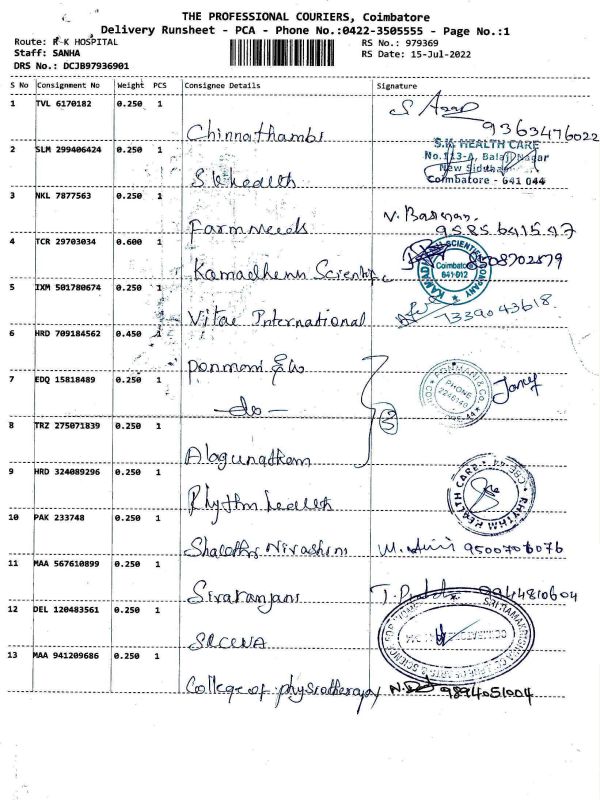 THE PROFESSIONAL COURIERS, Coimbatore
Delivery Runsheet - PCA - Phone No.:0422-3505555 - Page No.:1
Route: R K HOSPITAL RS No.: 979369
Staff: SANHA RS Date: 15-Jul-2022
DRS No.: DCJB97936901
S No Consignment No Weight PCS Consignee Details Signature
1 TVL 6170182 0.250 1 Chinnathambi S. Azap 9363476022
2 SLM 299406424 0.250 1 S.K health S.K. HEALTH CARE
No.113-A, Balaji Nagar
New Siddhapudur
Coimbatore - 641 044
3 NKL 7877563 0.250 1 Farm needs V. Barman. 9585641597
4 TCR 29703034 0.600 1 Kamadhenu Scientific KAMADHENU SCIENTIFIC COMPANY Coimbatore 641-012 9508702879
5 IXM 501780674 0.250 1 Vitae International 7339043618
6 HRD 709184562 0.450 1 Ponmani & Co
7 EDQ 15818489 0.250 1 - do - 3 PONMANI & CO. PHONE 2246140 CBE-44
8 TRZ 275071839 0.250 1 Alagunathem
9 HRD 324089296 0.250 1 Rhythm health RHYTHM HEALTH CARE CBE-44
10 PAK 233748 0.250 1 Nivashini 9500706076
11 MAA 567610899 0.250 1 Sivaranjani 9944810604
12 DEL 120483561 0.250 1 SRI RAMAKRISHNA COLLEGE OF ARTS & SCIENCE FOR WOMEN
13 MAA 941209686 0.250 1 College of physiotherapy 9894051004